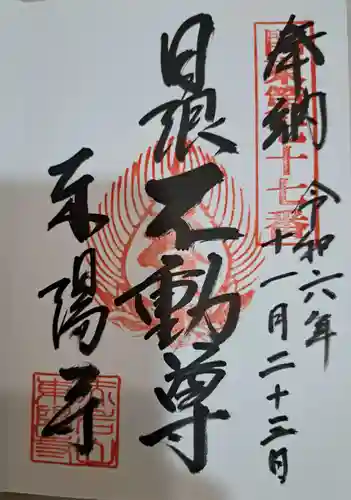 奉納
十七番
令和六年
十一月二十二日
日限不動尊
東陽寺